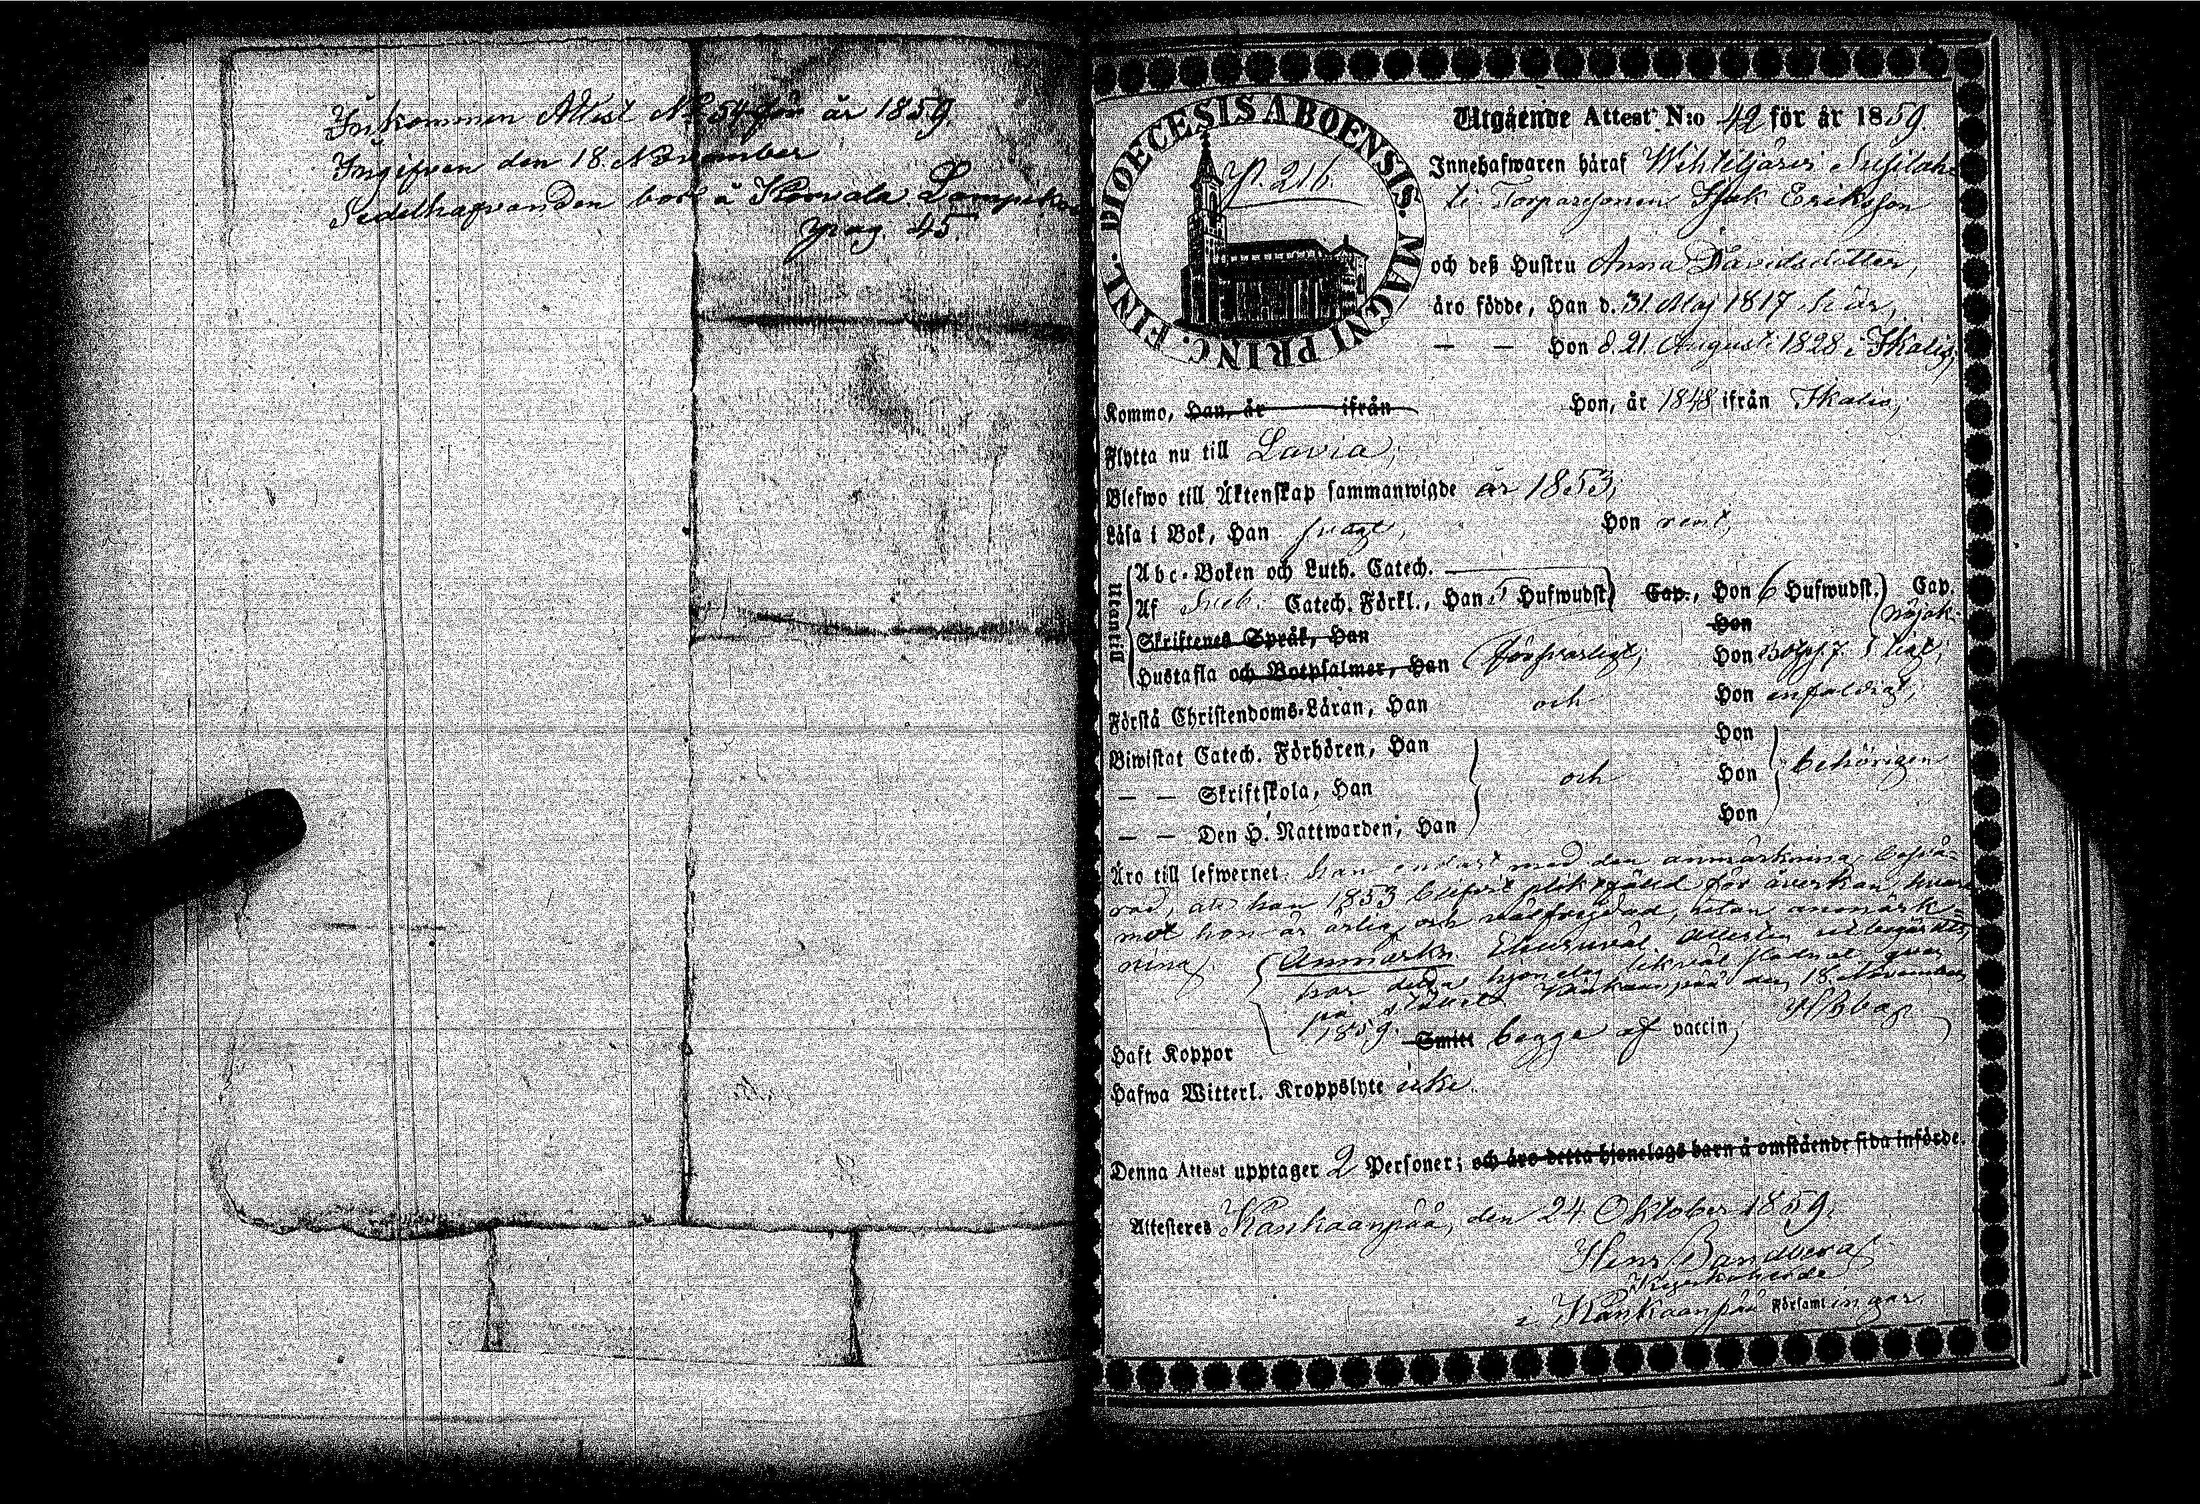 Inkommen Attest No 54 för år 1859.
Ingifven den 18 November
Sedelhafvanden bor å Korvala Lampi
pag. 45.
DIOECESIS ABOENSIS. MAGNI PRINC. FINL.
p. 216.
Utgående Attest N:o 42 för år 1859.
Innehafwaren häraf Wihteljärvi
Torparesonen Isak Eriksson
och deß Hustru Anna Davidsdotter,
äro födde, Han d. 31 Maj 1817 här,
— — Hon d. 21 August 1828 i Ikalis,
Kommo, Han, år ifrån Hon, år 1848 ifrån Ikalis,
Flytta nu till Lavia,
Blefwo till Äktenskap sammanwigde år 1853,
Läsa i Bok, Han svagt, Hon rent,
Utantill
Abc-Boken och Luth. Catech.
Af Sveb. Catech. Förkl., Han 5 Hufwudst. Cap., Hon 6 Hufwudst. Cap.
Skriftenes Språk, Han Hon nöjak-
Hustafla och Botpsalmer, Han försvarligt, Hon Botps. 7 ligt,
Förstå Christendoms-Läran, Han och Hon enfaldigt,
Biwistat Catech. Förhören, Han Hon
— — Skriftskola, Han och Hon behörigen
— — Den H. Nattwarden, Han Hon
Äro till lefwernet han endast med den anmärkning besvä-
rad, att han 1853 blifvit pliktfäld för åverkan, hvar-
mot hon är ärlig och välfrejdad, utan anmärk-
ning.
Anmärkn. Ehuruväl Attesten utbegärdts,
har detta hjonelag likväl stadnat qvar
på stället Kankaanpää den 18 November
1859.
Haft Koppor Smitt begge af vaccin,
Hafwa Witterl. Kroppslyte icke.
Denna Attest upptager 2 Personer; och äro detta hjonelags barn å omstående sida införde.
Attesteres Kankaanpää, den 24 Oktober 1859.
Henr. Bandberg
Kyrkoherde
i Kankaanpää Församlingar.